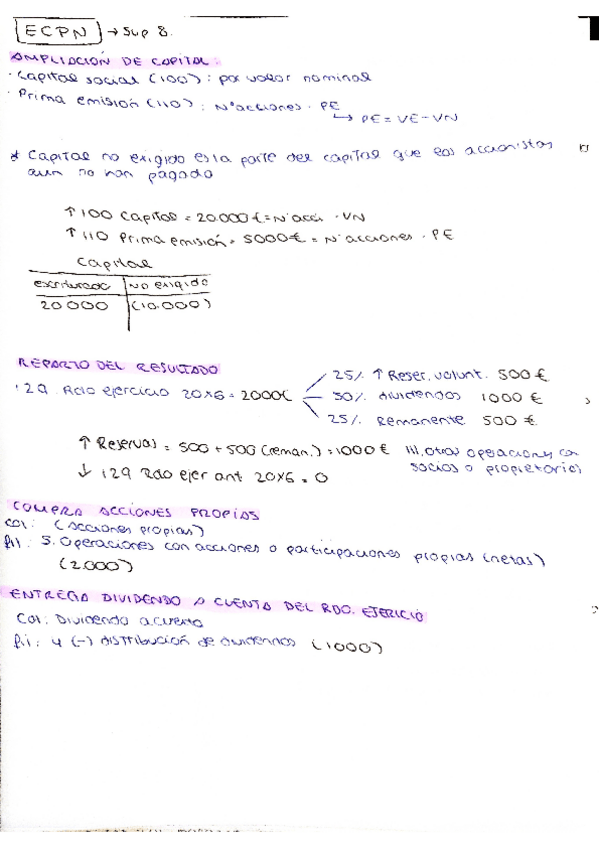 ECPN → Sup 8.
AMPLIACIÓN DE CAPITAL:
· Capital social (100): por valor nominal
· Prima emisión (110): Nº acciones · PE
↳ PE = VE - VN
* Capital no exigido es la parte del capital que los accionistas
aun no han pagado
↑ 100 Capital = 20.000 € = Nº acci · VN
↑ 110 Prima emisión = 5000 € = Nº acciones · PE
Capital
escriturado | No exigido
20 000 | (10.000)
REPARTO DEL RESULTADO
129. Rdo ejercicio 20X6 = 2000€
25% ↑ Reser. volunt. 500 €
50% dividendos 1000 €
25% Remanente 500 €
↑ Reservas = 500 + 500 (reman.) = 1000 € III. otras operaciones con
socios o propietarios
↓ 129 Rdo ejer ant 20X6 = 0
COMPRA ACCIONES PROPIAS
Col: (acciones propias)
fil: 5. Operaciones con acciones o participaciones propias (netas)
(2.000)
ENTREGA DIVIDENDO A CUENTA DEL RDO. EJERCICIO
Col: Dividendo a cuenta
fil: 4 (-) distribución de dividendos (1000)